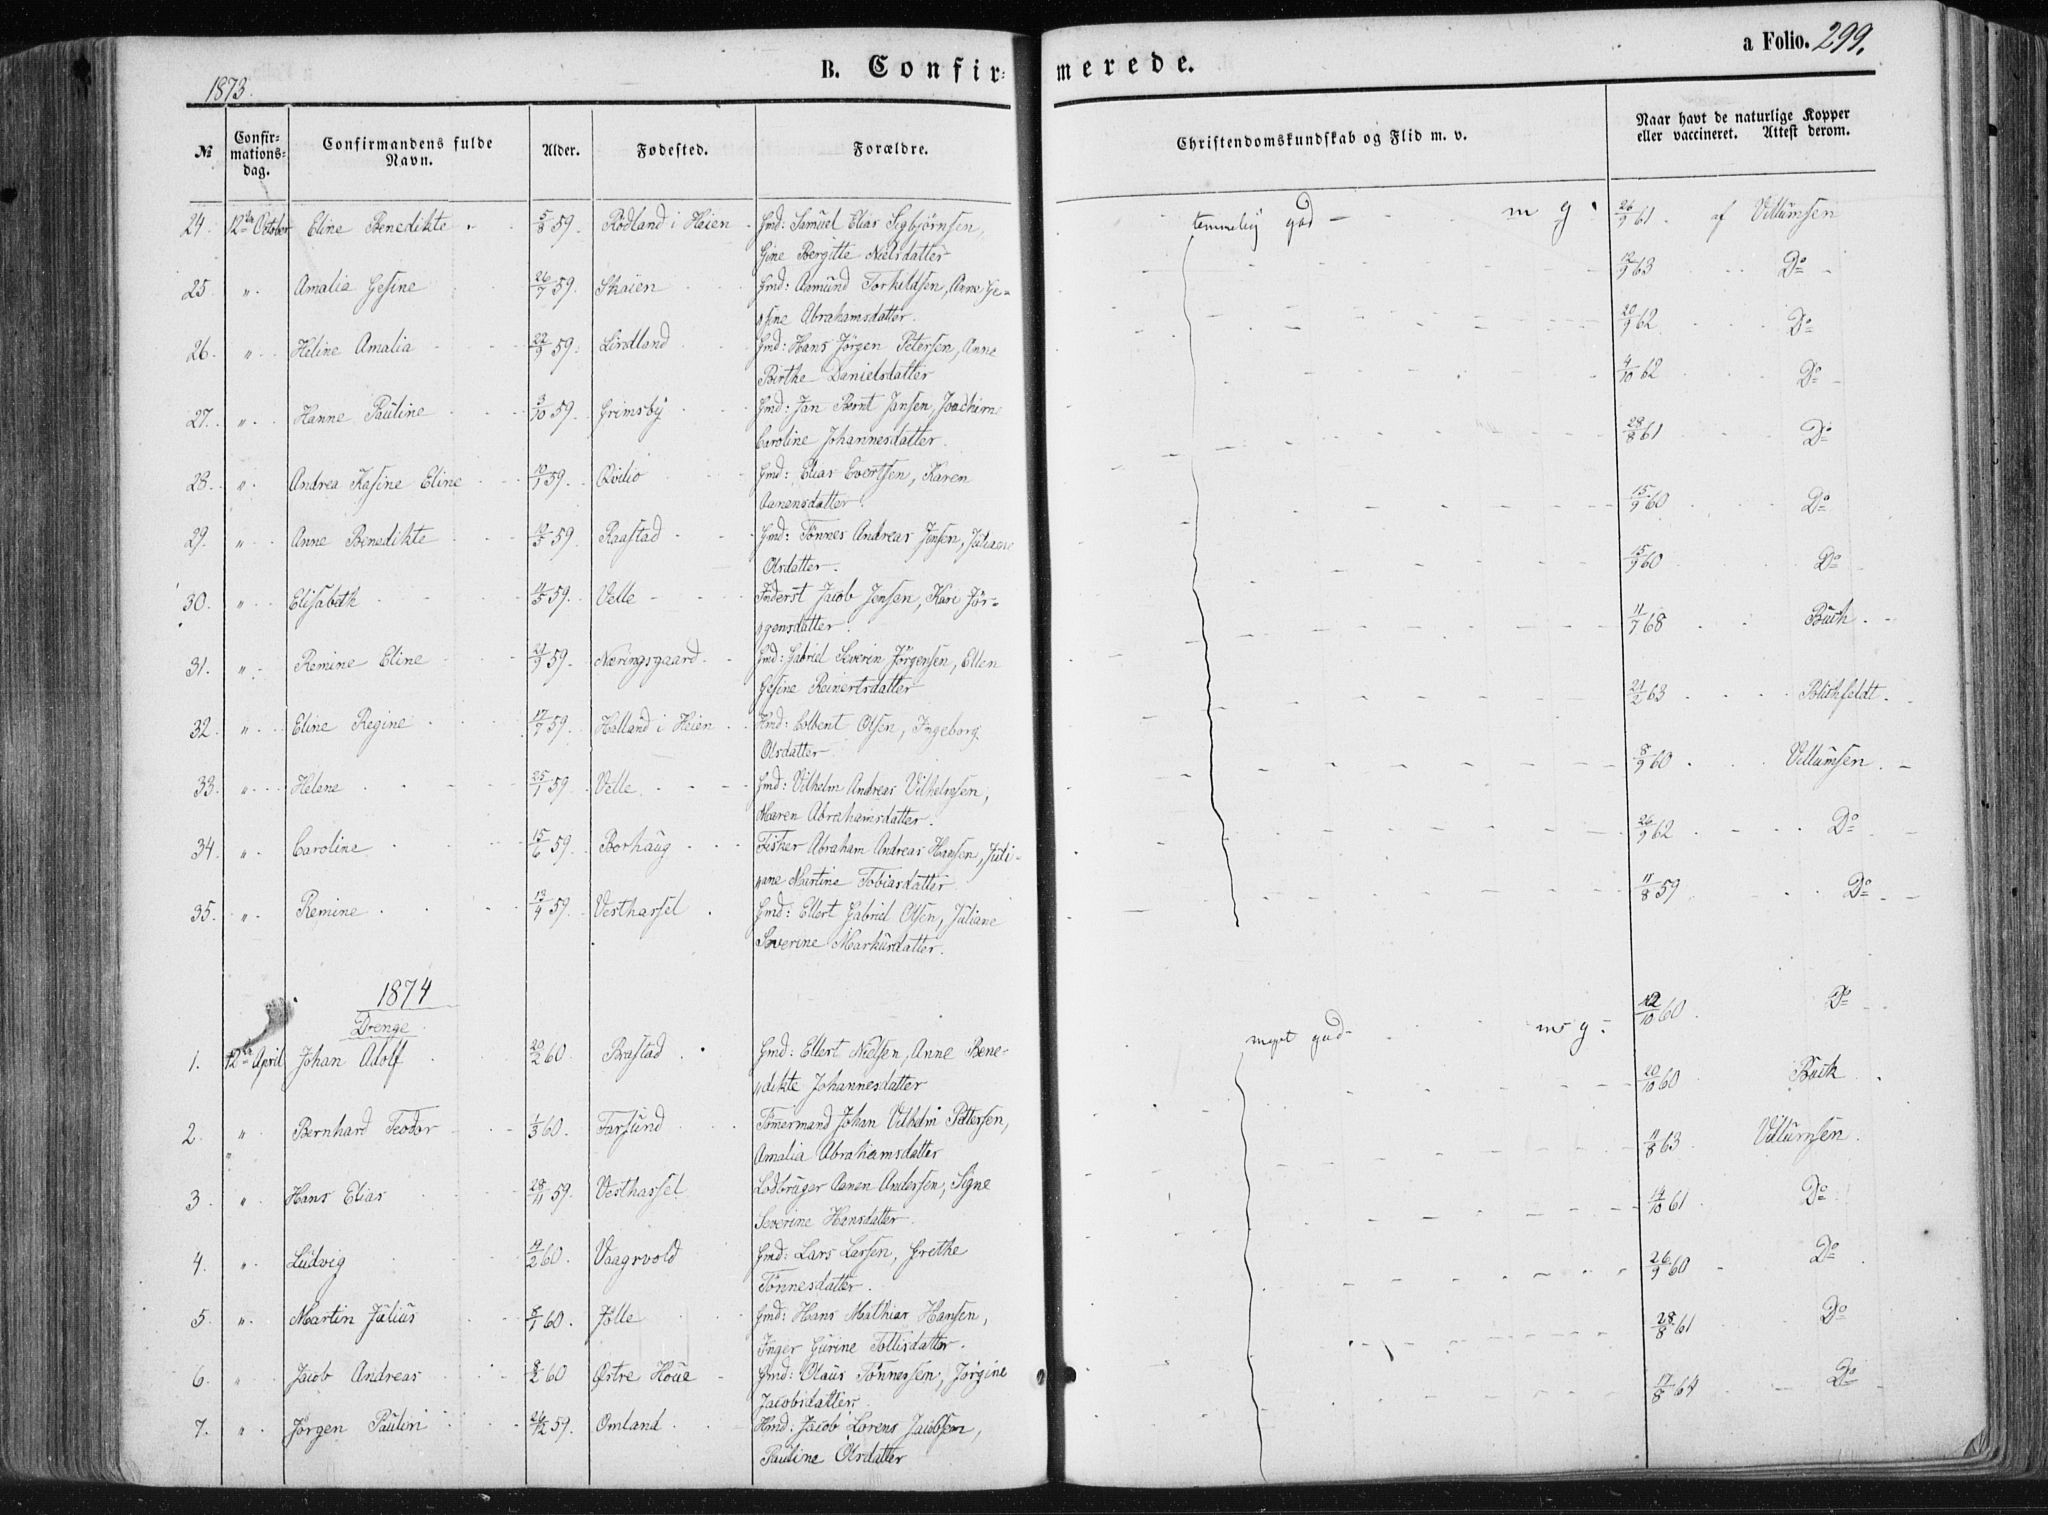 1873.
B. Confirmerede.
a Folio. 299.
№ Confirmationsdag. Confirmandens fulde Navn. Alder. Fødested. Forældre. Christendomskundskab og Flid m. v. Naar havt de naturlige Kopper eller vaccineret. Attest derom.
24. 12te October Eline Benedikte 5/8 59 Rødland i Heien Gmd: Samuel Elias Sigbjørnsen, temmelig god m g. 26/9 61. af Villumsen
Gine Bergitte Nielsdatter
25. " Amalia Gesine 26/7 59. Skaien Gmd: Aamund Torkildsen, Anne Ge- 12/9 63 Do
"sine Abrahamsdatter.
26. " Heline Amalia 22/9 59. Lindland Gmd: Hans Jørgen Petersen, Anne 20/9 62 Do
Birthe Danielsdatter
27. " Hanne Pauline 3/10 59. Grimsby Gmd: Jan Bernt Jansen, Joachime 4/10 62 Do
Caroline Johannesdatter.
28. " Andrea Kasine Eline 10/1 59. Qviljo Gmd: Elias Evertsen, Karen 28/8 61 Do
Aanensdatter.
29. " Anne Benedikte 10/5 59. Raastad Gmd: Tønnes Andreas Jensen, Juliane 15/9 60 Do
Olsdatter.
30. " Elisabeth 4/5 59. Velle Inderst Jacob Jensen, Kare Jør- 15/9 60 Do
"gensdatter.
31. " Remine Eline 21/9 59. Næringsgaard Gmd: Gabriel Severin Jørgensen, Ellen 11/7 68 Buch
Gesine Reinertsdatter
32. " Eline Regine 17/7 59. Halland i Heien Hmd: Colbent Olsen, Ingeborg 21/2 63 Blichfeldt.
Olsdatter
33. " Helene 25/1 59 Velle Gmd: Vilhelm Andreas Vilhelmsen, 8/9 60 Villumsen
Maren Abrahamsdatter.
34. " Caroline 15/6 59. Borhaug Fisker Abraham Andreas Hansen, Juli- 26/9 62 Do
"ane Martine Tobiasdatter
35. " Remine 13/4 59. Vesthassel Gmd: Ellert Gabriel Olsen, Juliane 11/8 59 Do
Severine Markusdatter.
1874
Drenge
1. 12te April Johan Adolf 20/2 60. Brastad Gmd: Ellert Nielsen, Anne Bene- meget god m g. 12/10 60 Do
"dikte Johannesdatter
2. " Bernhard Teodor 1/3 60. Farsund Tømermand Johan Vilhelm Pettersen, 20/10 60 Buch
Amalia Abrahamsdatter
3. " Hans Elias 28/11 59. Vesthassel Lodbruger Aanen Andersen, Signe 11/8 63 Villumsen.
Severine Hansdatter.
4. " Ludvig 19/2 60. Vaagsvold Gmd: Lars Larsen, Grethe 14/10 61 Do
Tønnesdatter.
5. " Martin Julius 8/1 60. Jølle Gmd: Hans Mathias Hansen, 26/9 60 Do
Inger Gurine Tollisdatter.
6. " Jacob Andreas 8/2 60 Østre Houe Gmd: Olaus Tønnessen, Jørgine 28/8 61 Do
Jacobsdatter.
7. " Jørgen Paulin 26/12 59. Omland Hmd: Jacob Lorens Jacobsen, 17/8 64 Do
Pauline Olsdatter